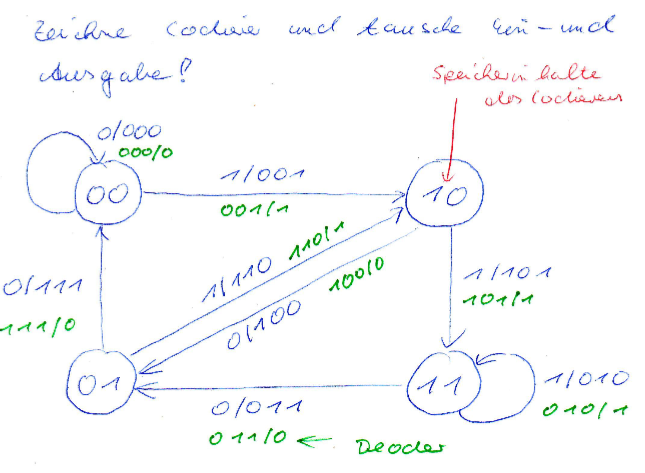 Zeichne Codierer und tausche Ein- und
Ausgabe!
Speicherinhalte
des Codierers
0/000
000/0
00
1/001
001/1
10
1/110 110/1
0/100 100/0
0/111
111/0
1/101
101/1
01
11
0/011
011/0 ← Deoder
1/010
010/1